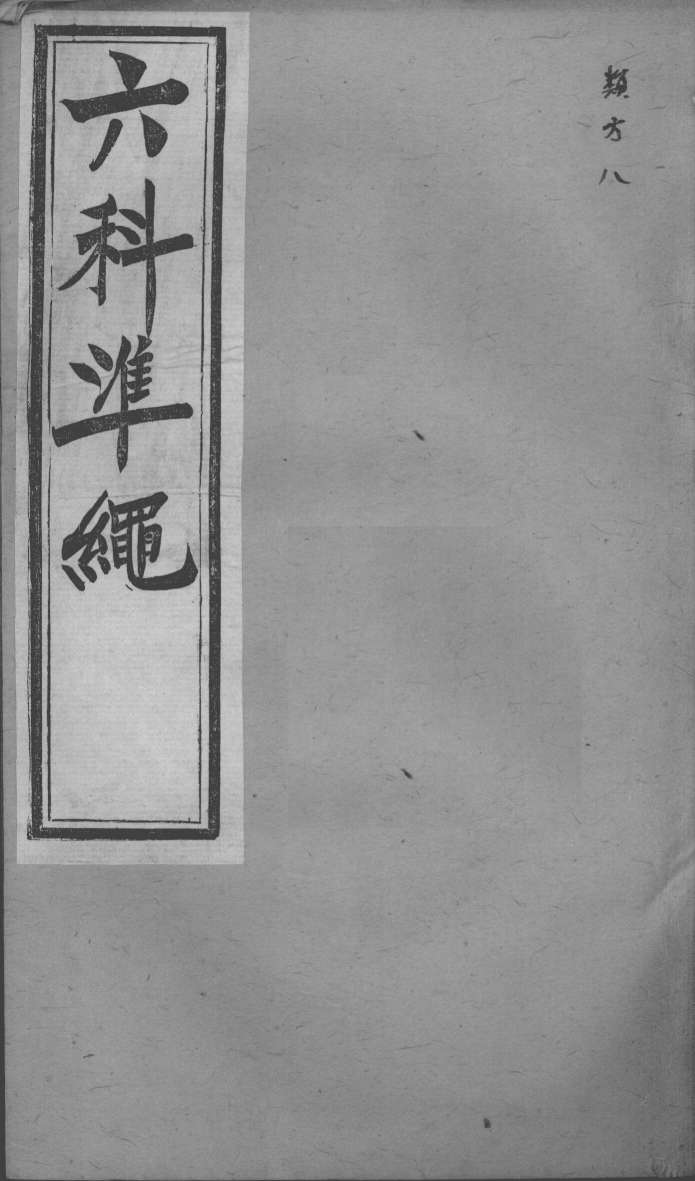 類方八
六科準繩